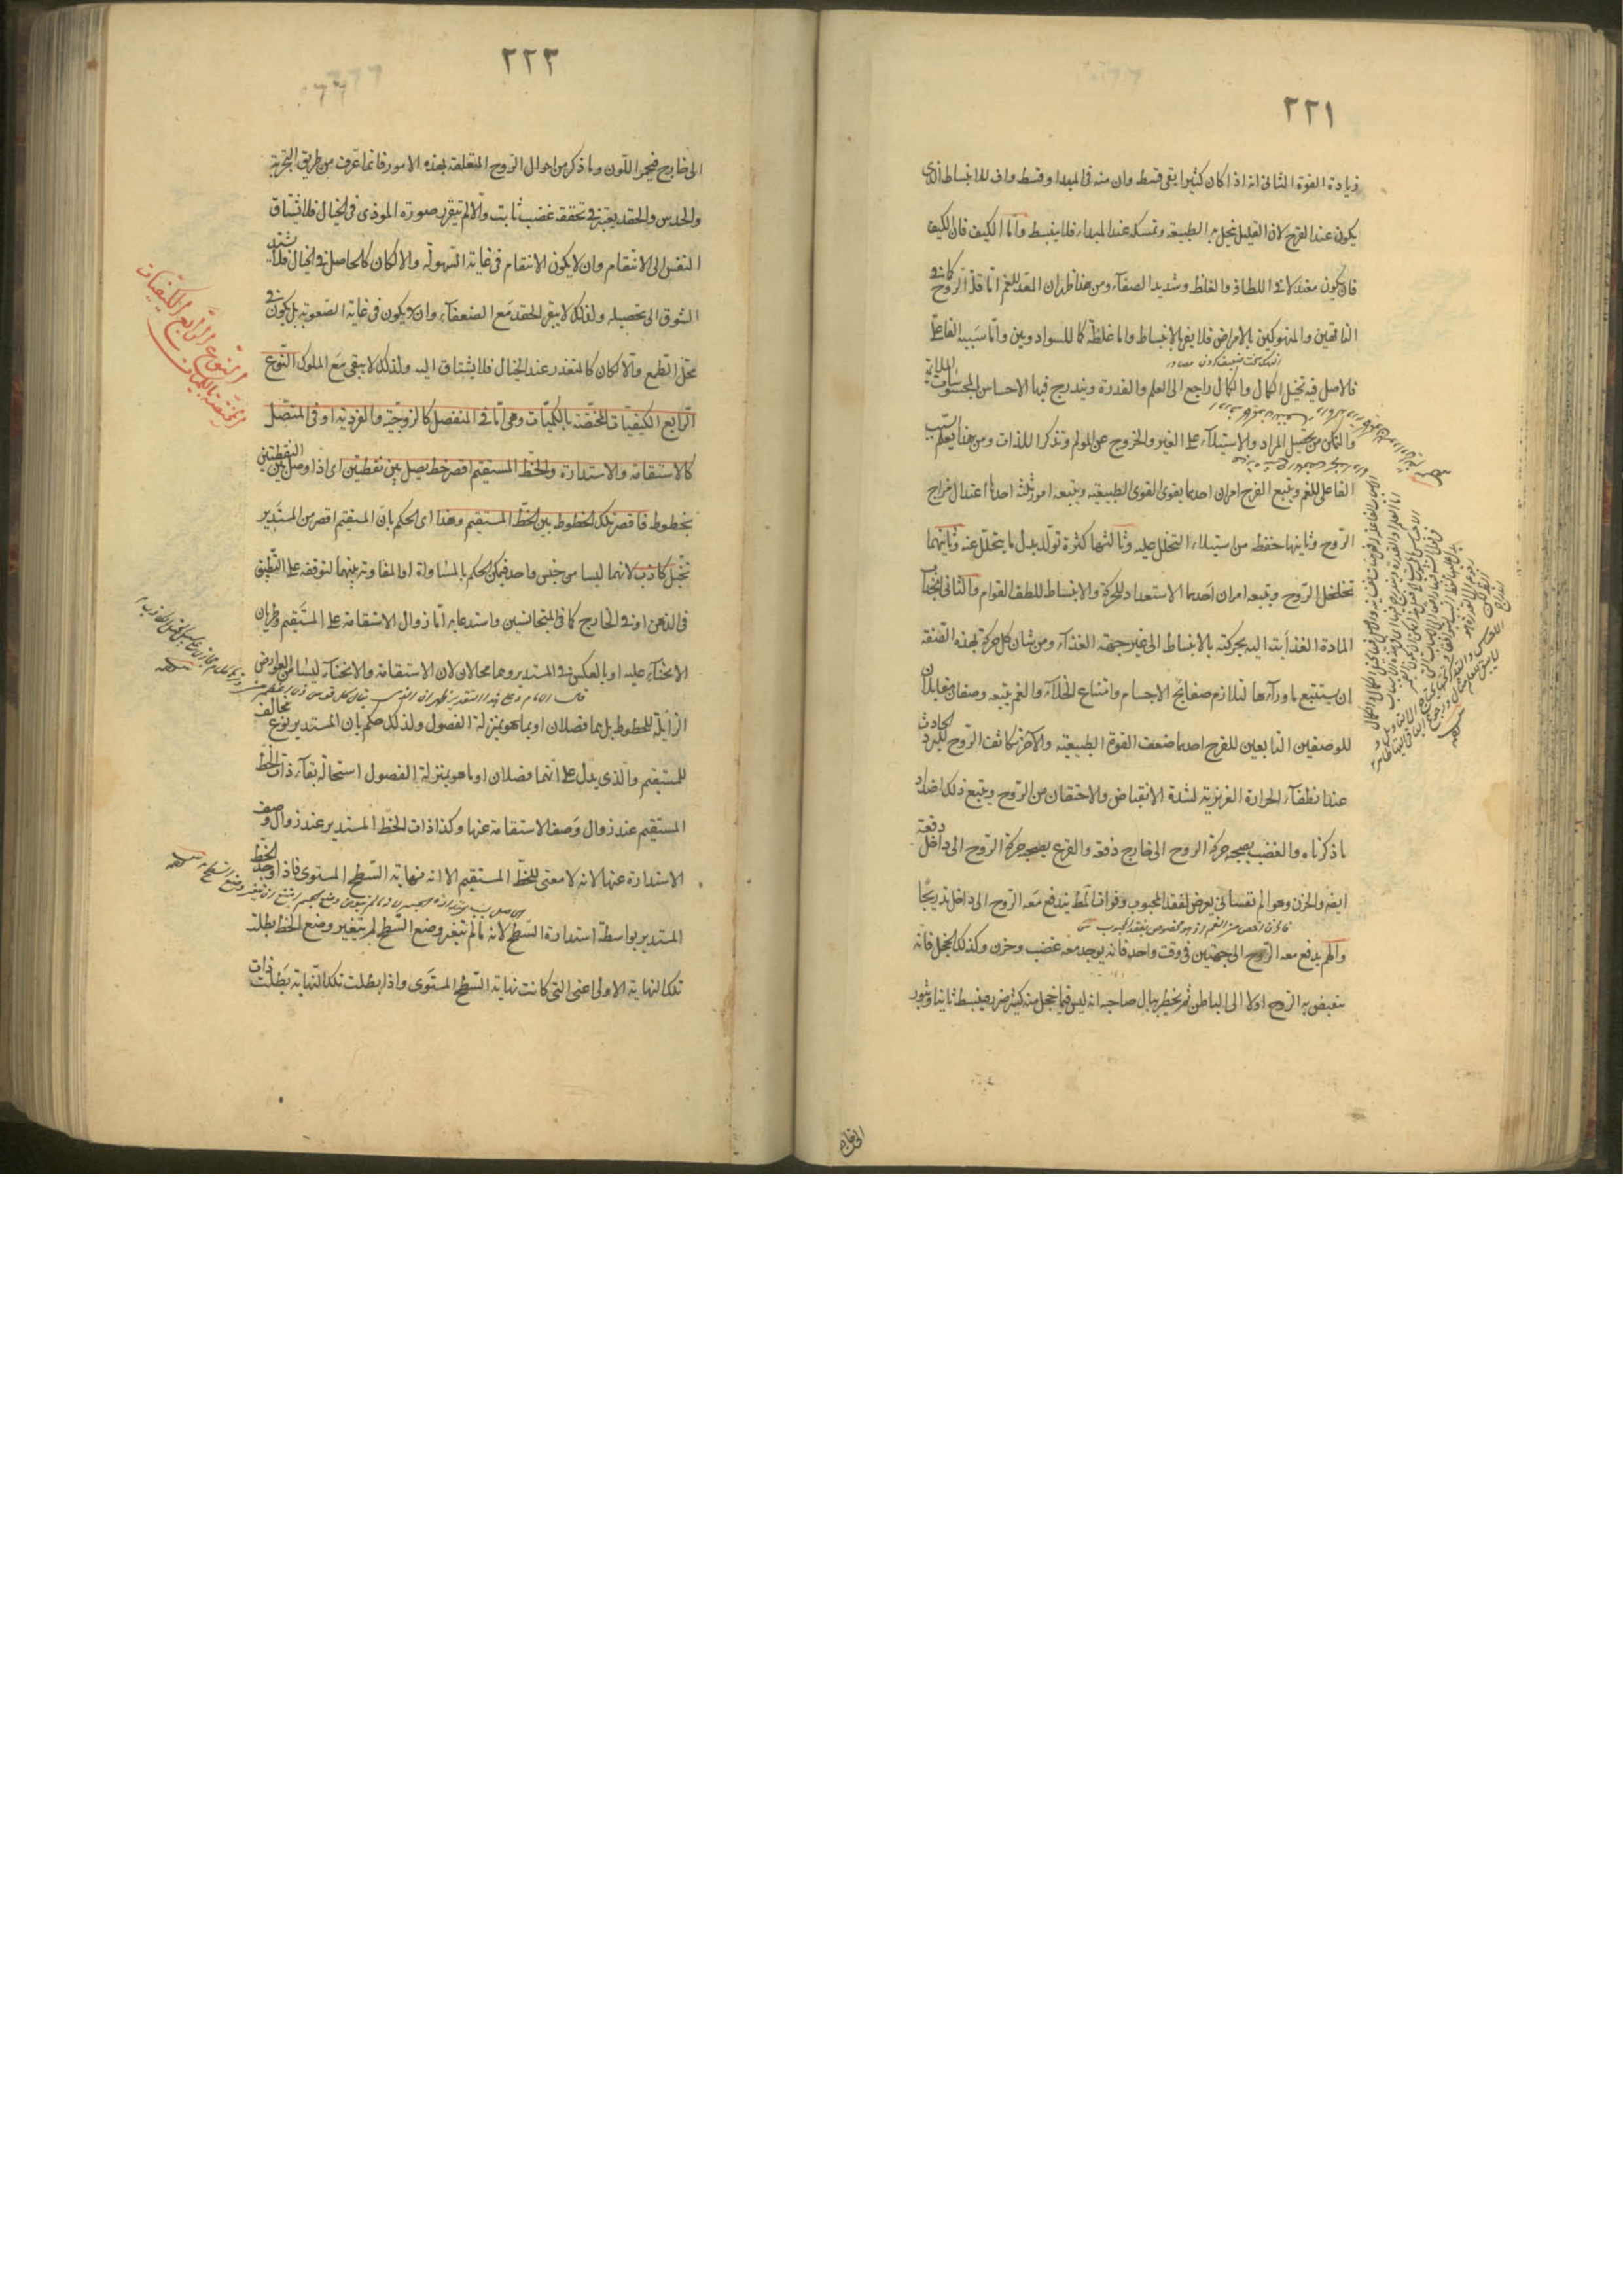 ٢٢١
زيادة القوة الثانى انه اذا كان كثيرا يبقى قسط وان منه فى المبدا وقسط واف للانبساط الذى
يكون عند الفرح لان القليل يبخل به الطبيعة وتمسكه عند المبداء فلا ينبسط واما الكيف فان الكيف
فان يكون معتدلا فى اللطافة والغلظ وشديد الصفآء ومن هنا ظهر ان المعد للغم اما قلة الروح كما فى
الناقهين والمنهوكين بالامراض فلا يفى بالانبساط واما غلظه كما للسوداويين واما سببه الفاعلى
فالاصل فيه تخيل الكمال والكمال راجع الى العلم والقدرة ويندرج فيها الاحساس بالمحسوسات
والتمكن من تحصيل المراد والاستيلآء على الغير والخروج عن المولم وتذكر اللذات ومن هنا يعلم السبب
الفاعلى للغم ويتبع الفرح امران احدهما يقوى القوى الطبيعية ويتبعه امور ثلث احدها اعتدال مزاج
الروح وثانيها حفظه من استيلاء التحلل عليه وثالثها كثرة تولد بدل ما يتحلل عنه وثانيهما
تخلخل الروح ويتبعه امران احدهما الاستعداد للحركة والانبساط للطف القوام والثانى انجذاب
المادة الغذآئية اليه بحركته بالانبساط الى غير جهة الغذآء ومن شان كل حركة بهذه الصفة
ان يستتبع ماورآءها لتلازم صفايح الاجسام وامتناع الخلآء والغم يتبعه وصفان مقابلان
للوصفين التابعين للفرح احدهما ضعف القوة الطبيعية والآخر تكاثف الروح للبرد الحادث
عند انطفآء الحرارة الغريزية لشدة الانقباض والاحتقان من الروح ويتبع ذلك اضداد
ما ذكرناه والغضب يصحبه حركة الروح الى خارج دفعة والفزع يصحبه حركة الروح الى داخل دفعة
ايضه والحزن وهو الم نفسانى يعرض لفقد المحبوب وفوات المط يندفع معه الروح الى داخل تدريجا
والهم يدفع معه الروح الى جهتين فى وقت واحد فانه يوجد معه غضب وحزن وكذلك الخجل فانه
ينقبض به الروح اولا الى الباطن ثم يخطر ببال صاحبه انه ليس فيما خجل منه كثير ضرر فينبسط ثانيا ويثور
الى خارج
٢٢٢
الى خارج فيحمر اللون وما ذكر من احوال الروح المتعلقة بهذه الامور فانما عرفت من طريق التجربة
والحدس والحقد يعتبر فى تحققه غضب ثابت والا لم يتقرر صورة الموذى فى الخيال فلا تشتاق
النفس الى الانتقام وان لا يكون الانتقام فى غاية السهولة والا لكان كالحاصل فى الخيال فلا يشتد
الشوق الى تحصيله ولذلك لا يبقى الحقد مع الضعفآء وان لا يكون فى غاية الصعوبة بل يكون فى
محل الطمع والا كان كالمتعذر عند الخيال فلا يشتاق اليه ولذلك لا يبقى مع الملوك النوع
الرابع الكيفيات المختصة بالكميات وهى اما فى المنفصل كالزوجية والفردية او فى المتصل
كالاستقامة والاستدارة والخط المستقيم اقصر خط يصل بين نقطتين اى اذا وصل بين النقطتين
بخطوط فاقصر تلك الخطوط بين الخط المستقيم وهذا اى الحكم بان المستقيم اقصر من المستدير
تخيل كاذب لانهما ليسا من جنس واحد فيمكن الحكم بالمساواة او المفاوتة بينهما لتوقفه على التطبيق
فى الذهن او فى الخارج كما فى المتجانسين واستدعايه اما زوال الاستقامة على المستقيم وطريان
الانحنآء عليه او بالعكس فى المستدير وهما محالان لان الاستقامة والانحنآء ليسا من العوارض
الزايلة للخطوط بل هما فصلان او بما هو بمنزلة الفصول ولذلك حكم بان المستدير نوع مخالف
للمستقيم والذى يدل على انهما فصلان او ما هو بمنزلة الفصول استحالة بقآء ذات الخط
المستقيم عند زوال وصف الاستقامة عنها وكذا ذات الخط المستدير عند زوال وصف
الاستدارة عنها لانه لا معنى للخط المستقيم الا انه نهاية السطح المستوى فاذا وجد الخط
المستدير بواسطة استدارة السطح لانه ما لم يتغير وضع السطح لم يتغير وضع الخط بطلت
تلك النهاية الاولى اعنى التى كانت نهاية السطح المستوى واذا بطلت تلك النهاية بطلت ذات
النوع الرابع الكيفيات
المختصة بالكميات